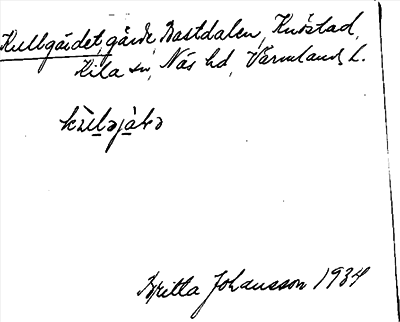 Kullgärdet, gärde, Bastdalen, Knöstad,
Kila sn, Näs hd, Värmland, L.
Britta Johansson 1934